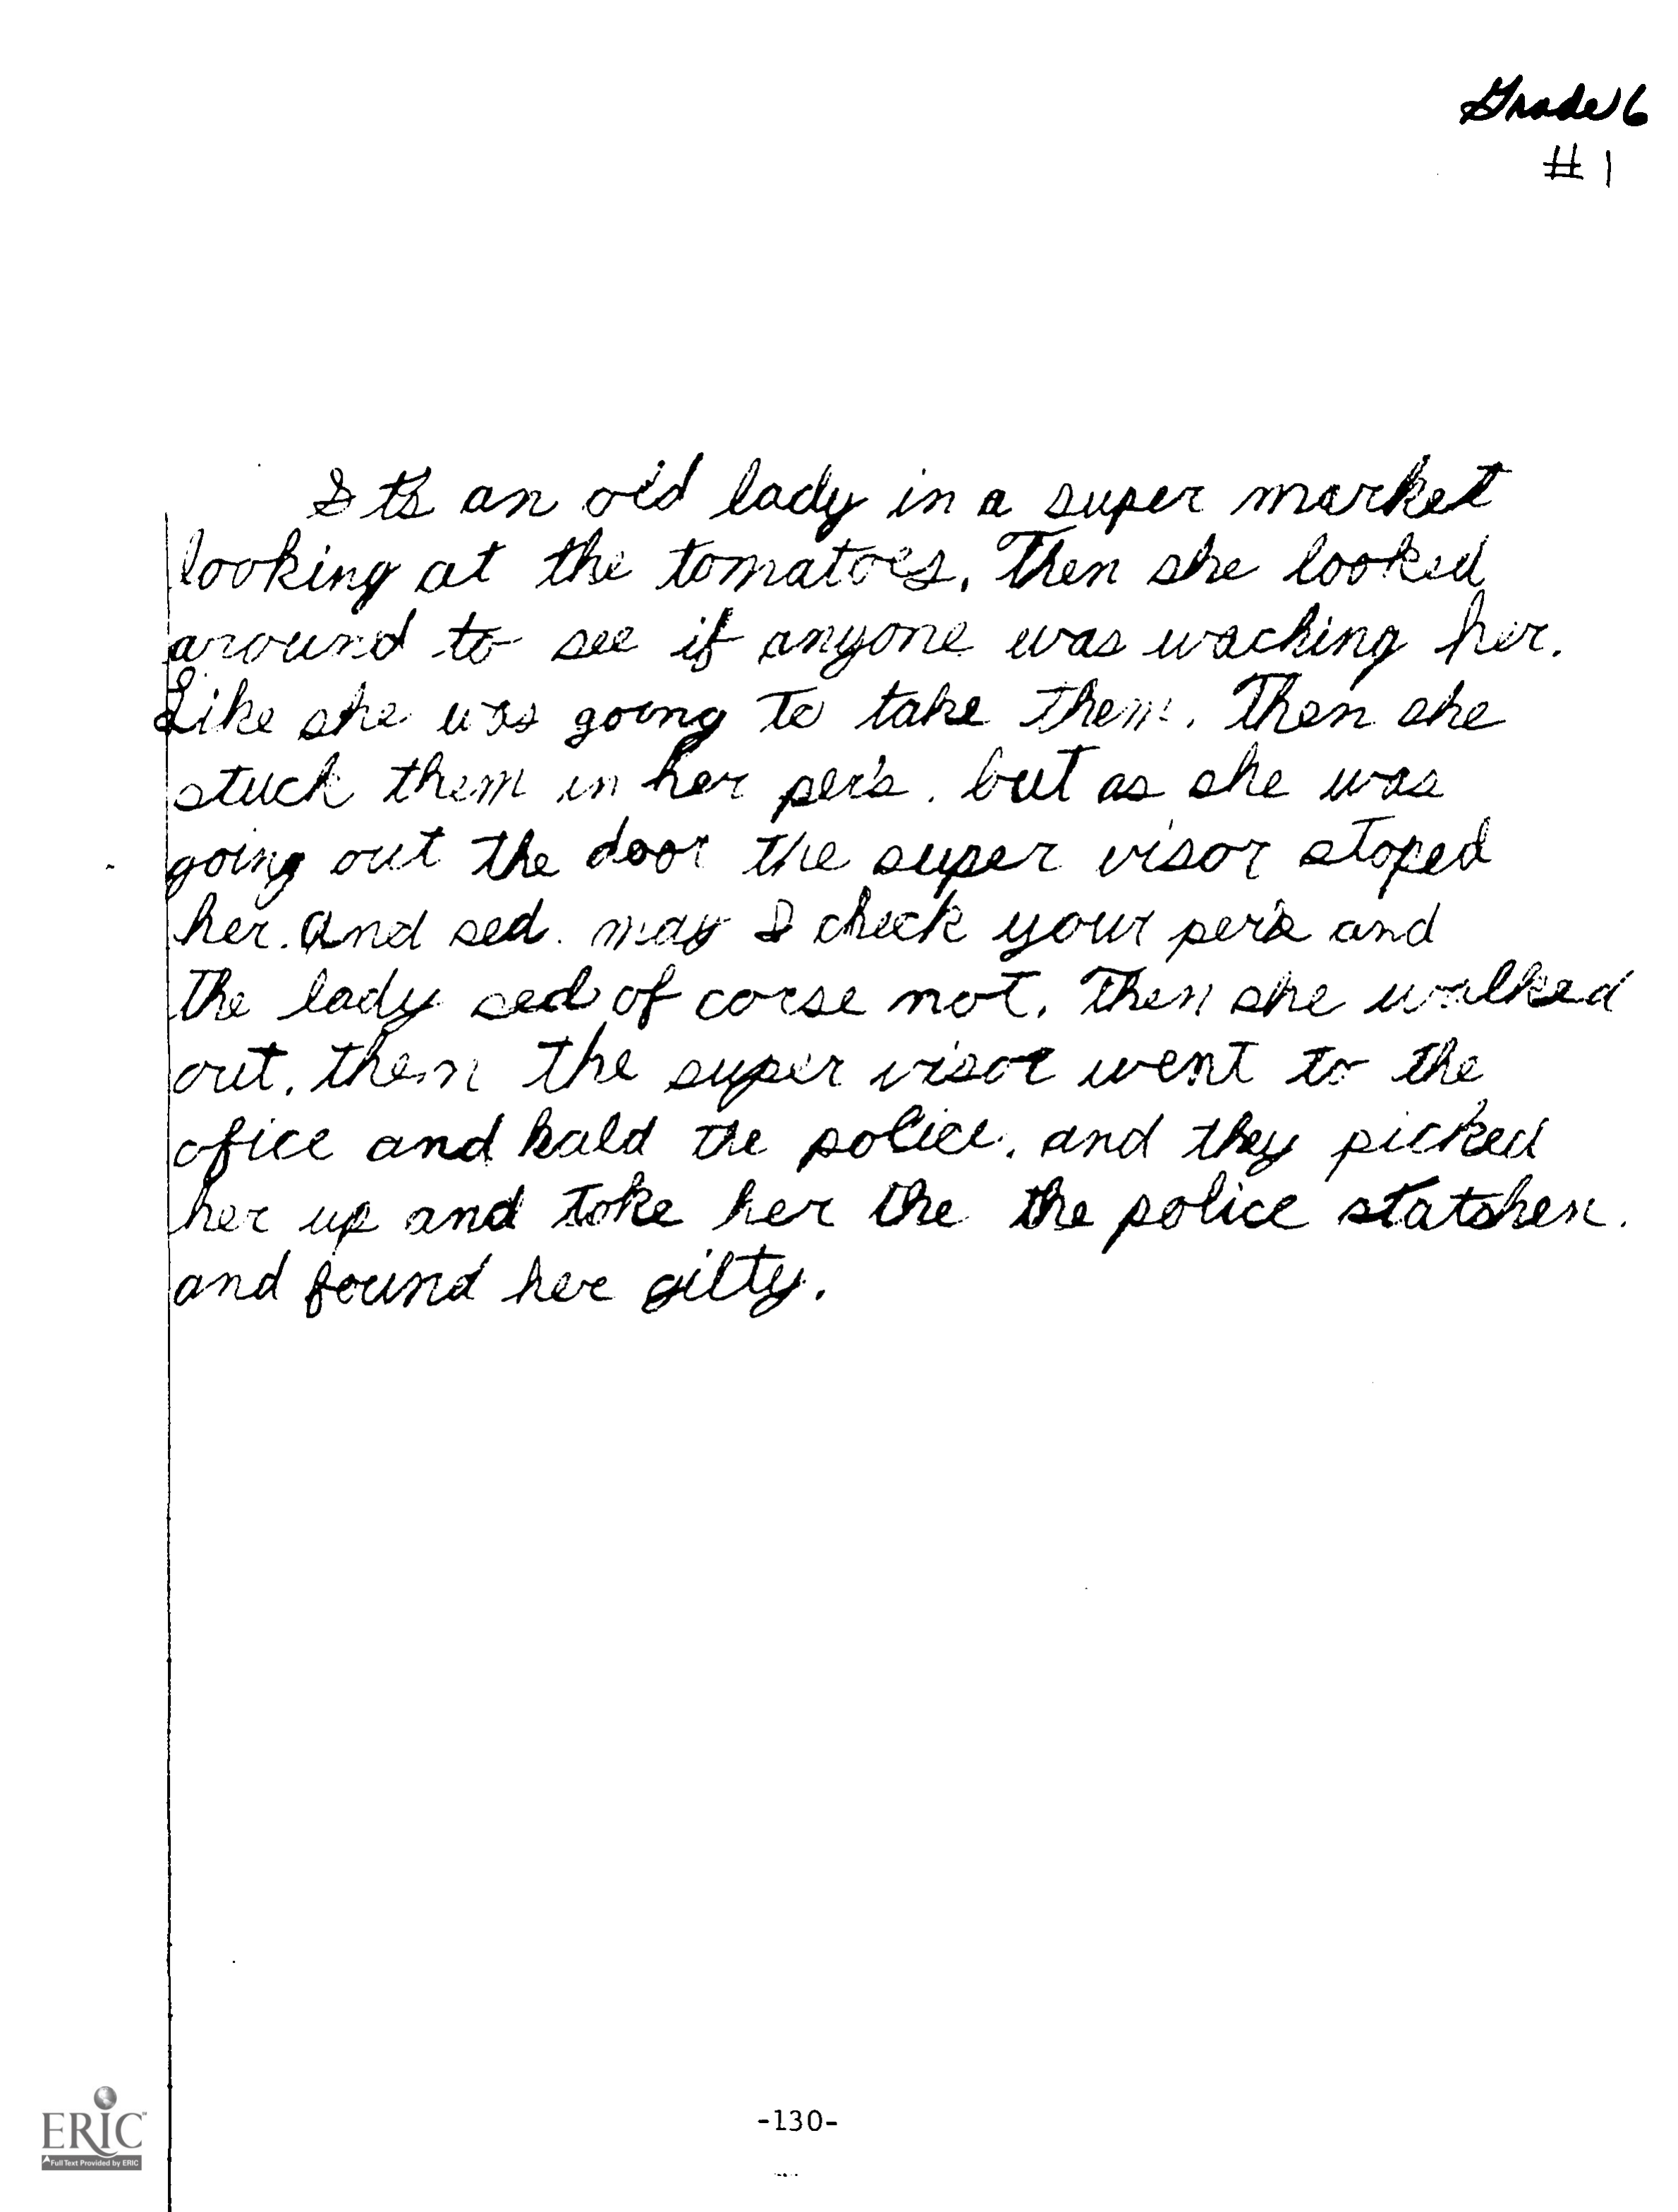 Grade 6
# 1
Its an old lady in a super market
looking at the tomatoes. Then she looked
around to see if anyone was waching her.
Like she was going to take them. Then she
stuck them in her per's. but as she was
going out the door the super visor stoped
her. And sed. may I check your per's and
the lady sed of corse not. Then she walked
out. then the super visor went to the
ofice and kald the police. and they picked
her up and toke her the the police statshen.
and found her gilty.
-130-
ERIC
Full Text Provided by ERIC